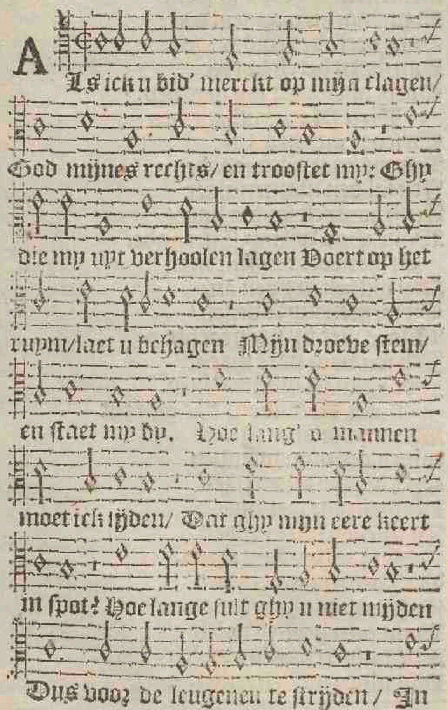 ALs ick u bid' merckt op mijn clagen/
God mijnes rechts/ en troostet my: Ghy
die my uyt verhoolen lagen Voert op het
ruym/laet u behagen Mijn droeve stem/
en staet my by. Hoe lang' o mannen
moet ick lijden/ Dat ghy mijn eere keert
in spot? Hoe lange sult ghy u niet mijden
Dus voor de leugenen te strijden/ In